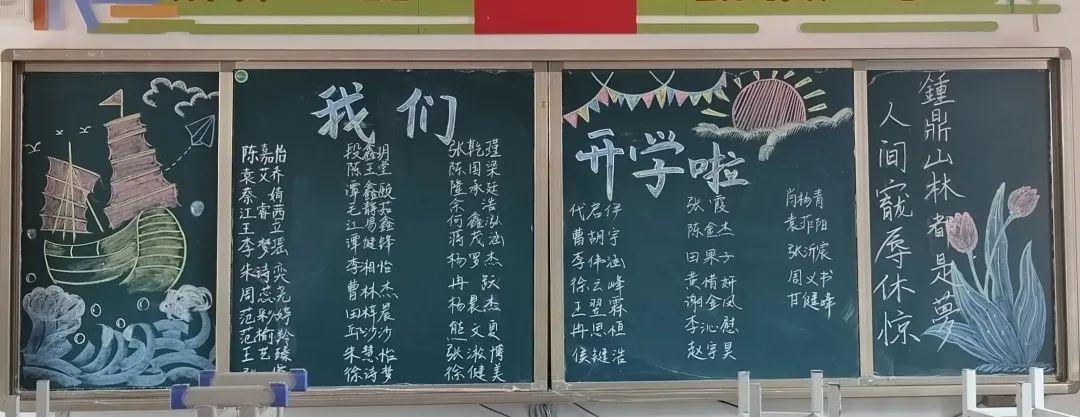 我们
陈嘉怡
艾乔
江睿茜
王立
李梦瑶
朱诗奕
周蕊
范
范榆
王艺臻
段鑫玥
陈玉莹
谭鑫颐
毛静茹
江易鑫
谭健锋
李相怡
曹林杰
田梓晨
邱沙沙
朱慧怡
徐诗梦
张乾瑆
陈国梁
隆承廷
余浩
何鑫泓
蒋茂涵
杨罗杰
冉跃
杨晨杰
熊文夏
张淑博
徐健美
开学啦
代君伊
曹胡宇
李伟涵
徐云峰
王翌霖
冉思恒
侯键浩
张霞
陈金杰
田果子
黄惜妍
谢金凤
李沁慰
赵宇昊
肖杨青
袁菲阳
张沂宸
周义书
甘健峰
鍾鼎山林都是夢
人间寵辱休惊